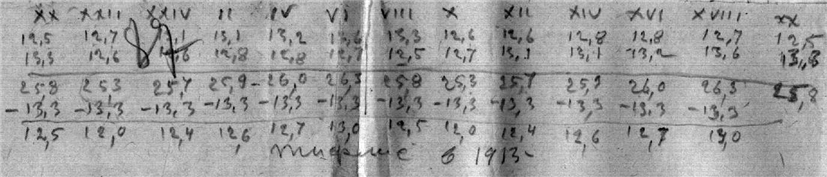 XX XXII XXIV II IV VI VIII X XII XIV XVI XVIII XX
12,5 12,7 13,1 13,2 13,6 13,3 12,6 12,6 12,8 12,8 12,7 12,5
13,3 12,6 12,6 12,8 12,8 12,7 12,5 12,7 13,1 13,1 13,2 13,6 13,3
25,8 25,3 25,7 25,9 26,0 26,3 25,8 25,3 25,7 25,9 26,0 26,3 25,8
-13,3 -13,3 -13,3 -13,3 -13,3 -13,3 -13,3 -13,3 -13,3 -13,3 -13,3 -13,3
12,5 12,0 12,4 12,6 12,7 13,0 12,5 12,0 12,4 12,6 12,7 13,0
в 1913-